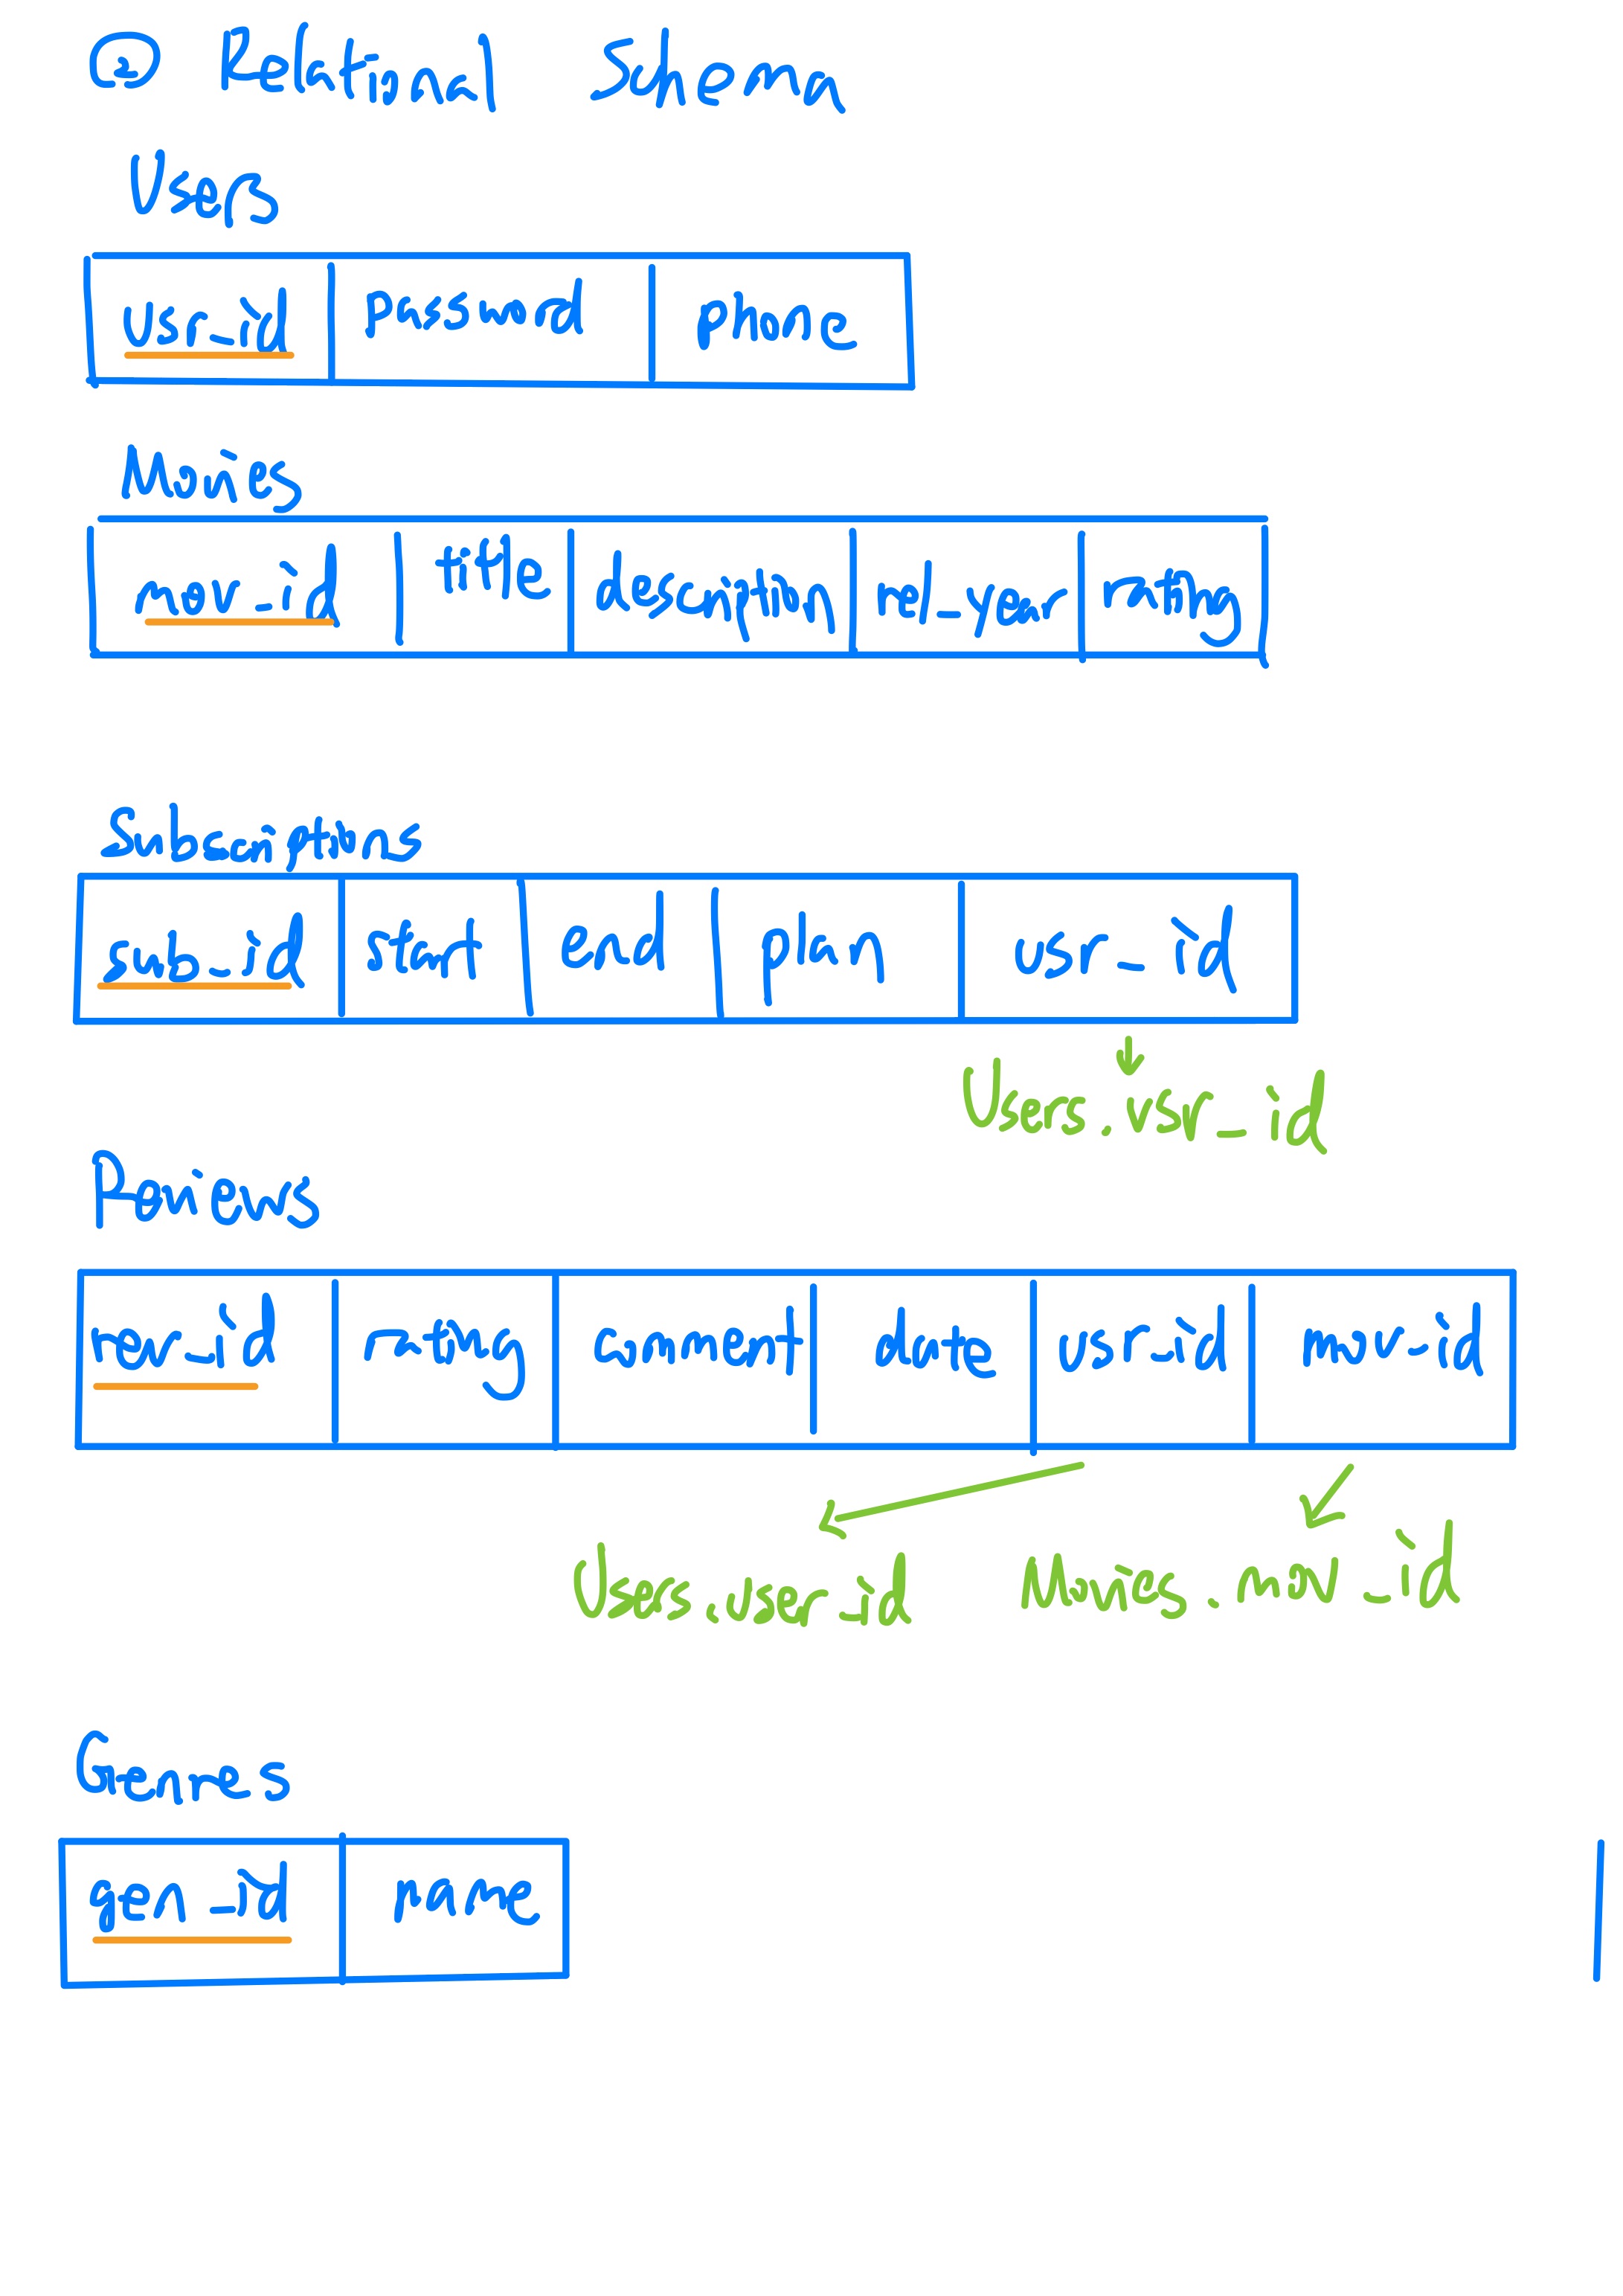 ② Relational Schema
Users
usr_id password phone
Movies
mov_id title description rel_year rating
Subscriptions
sub_id start end plan usr_id
Users.usr_id
Reviews
rev_id rating comment date usr_id mov_id
Users.user_id Movies.mov_id
Genres
gen_id name